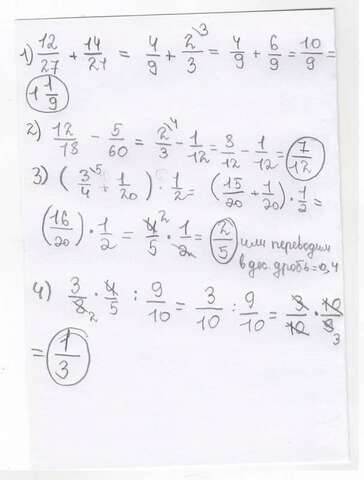 1) 12/27 + 14/21 = 4/9 + 2/3 \3 = 4/9 + 6/9 = 10/9 =
1 1/9
2) 12/18 - 5/60 = 2/3 \4 - 1/12 = 8/12 - 1/12 = 7/12
3) (3/4 \5 + 1/20) · 1/2 = (15/20 + 1/20) · 1/2 =
(16/20) · 1/2 = 4/5 2 · 1/2 = 2/5 или переводим
в дес. дробь = 0,4
4) 3/8 2 · 4/5 : 9/10 = 3/10 : 9/10 = 3/10 · 10/9 3
= 1/3